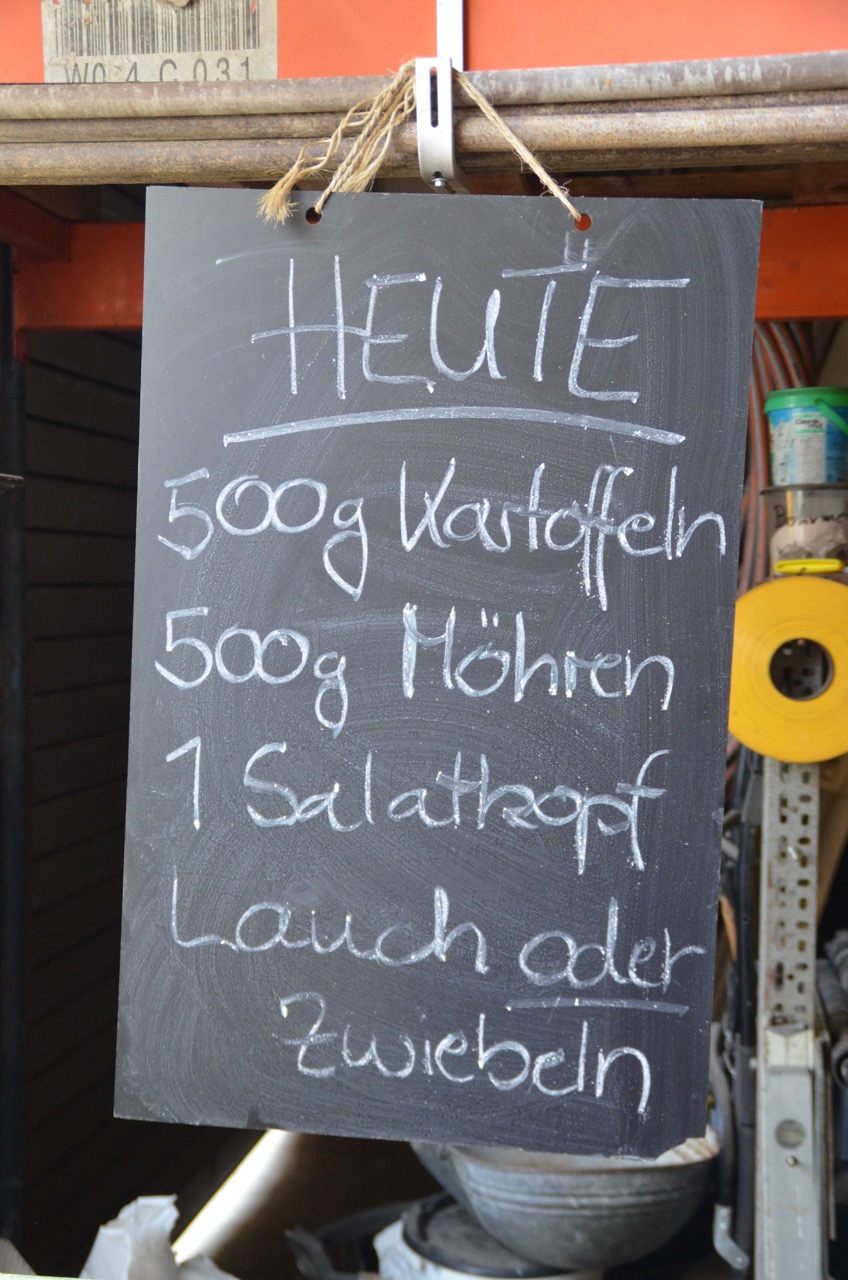 W0 4 C 031
HEUTE
500g Kartoffeln
500g Möhren
1 Salatkopf
Lauch oder
Zwiebeln